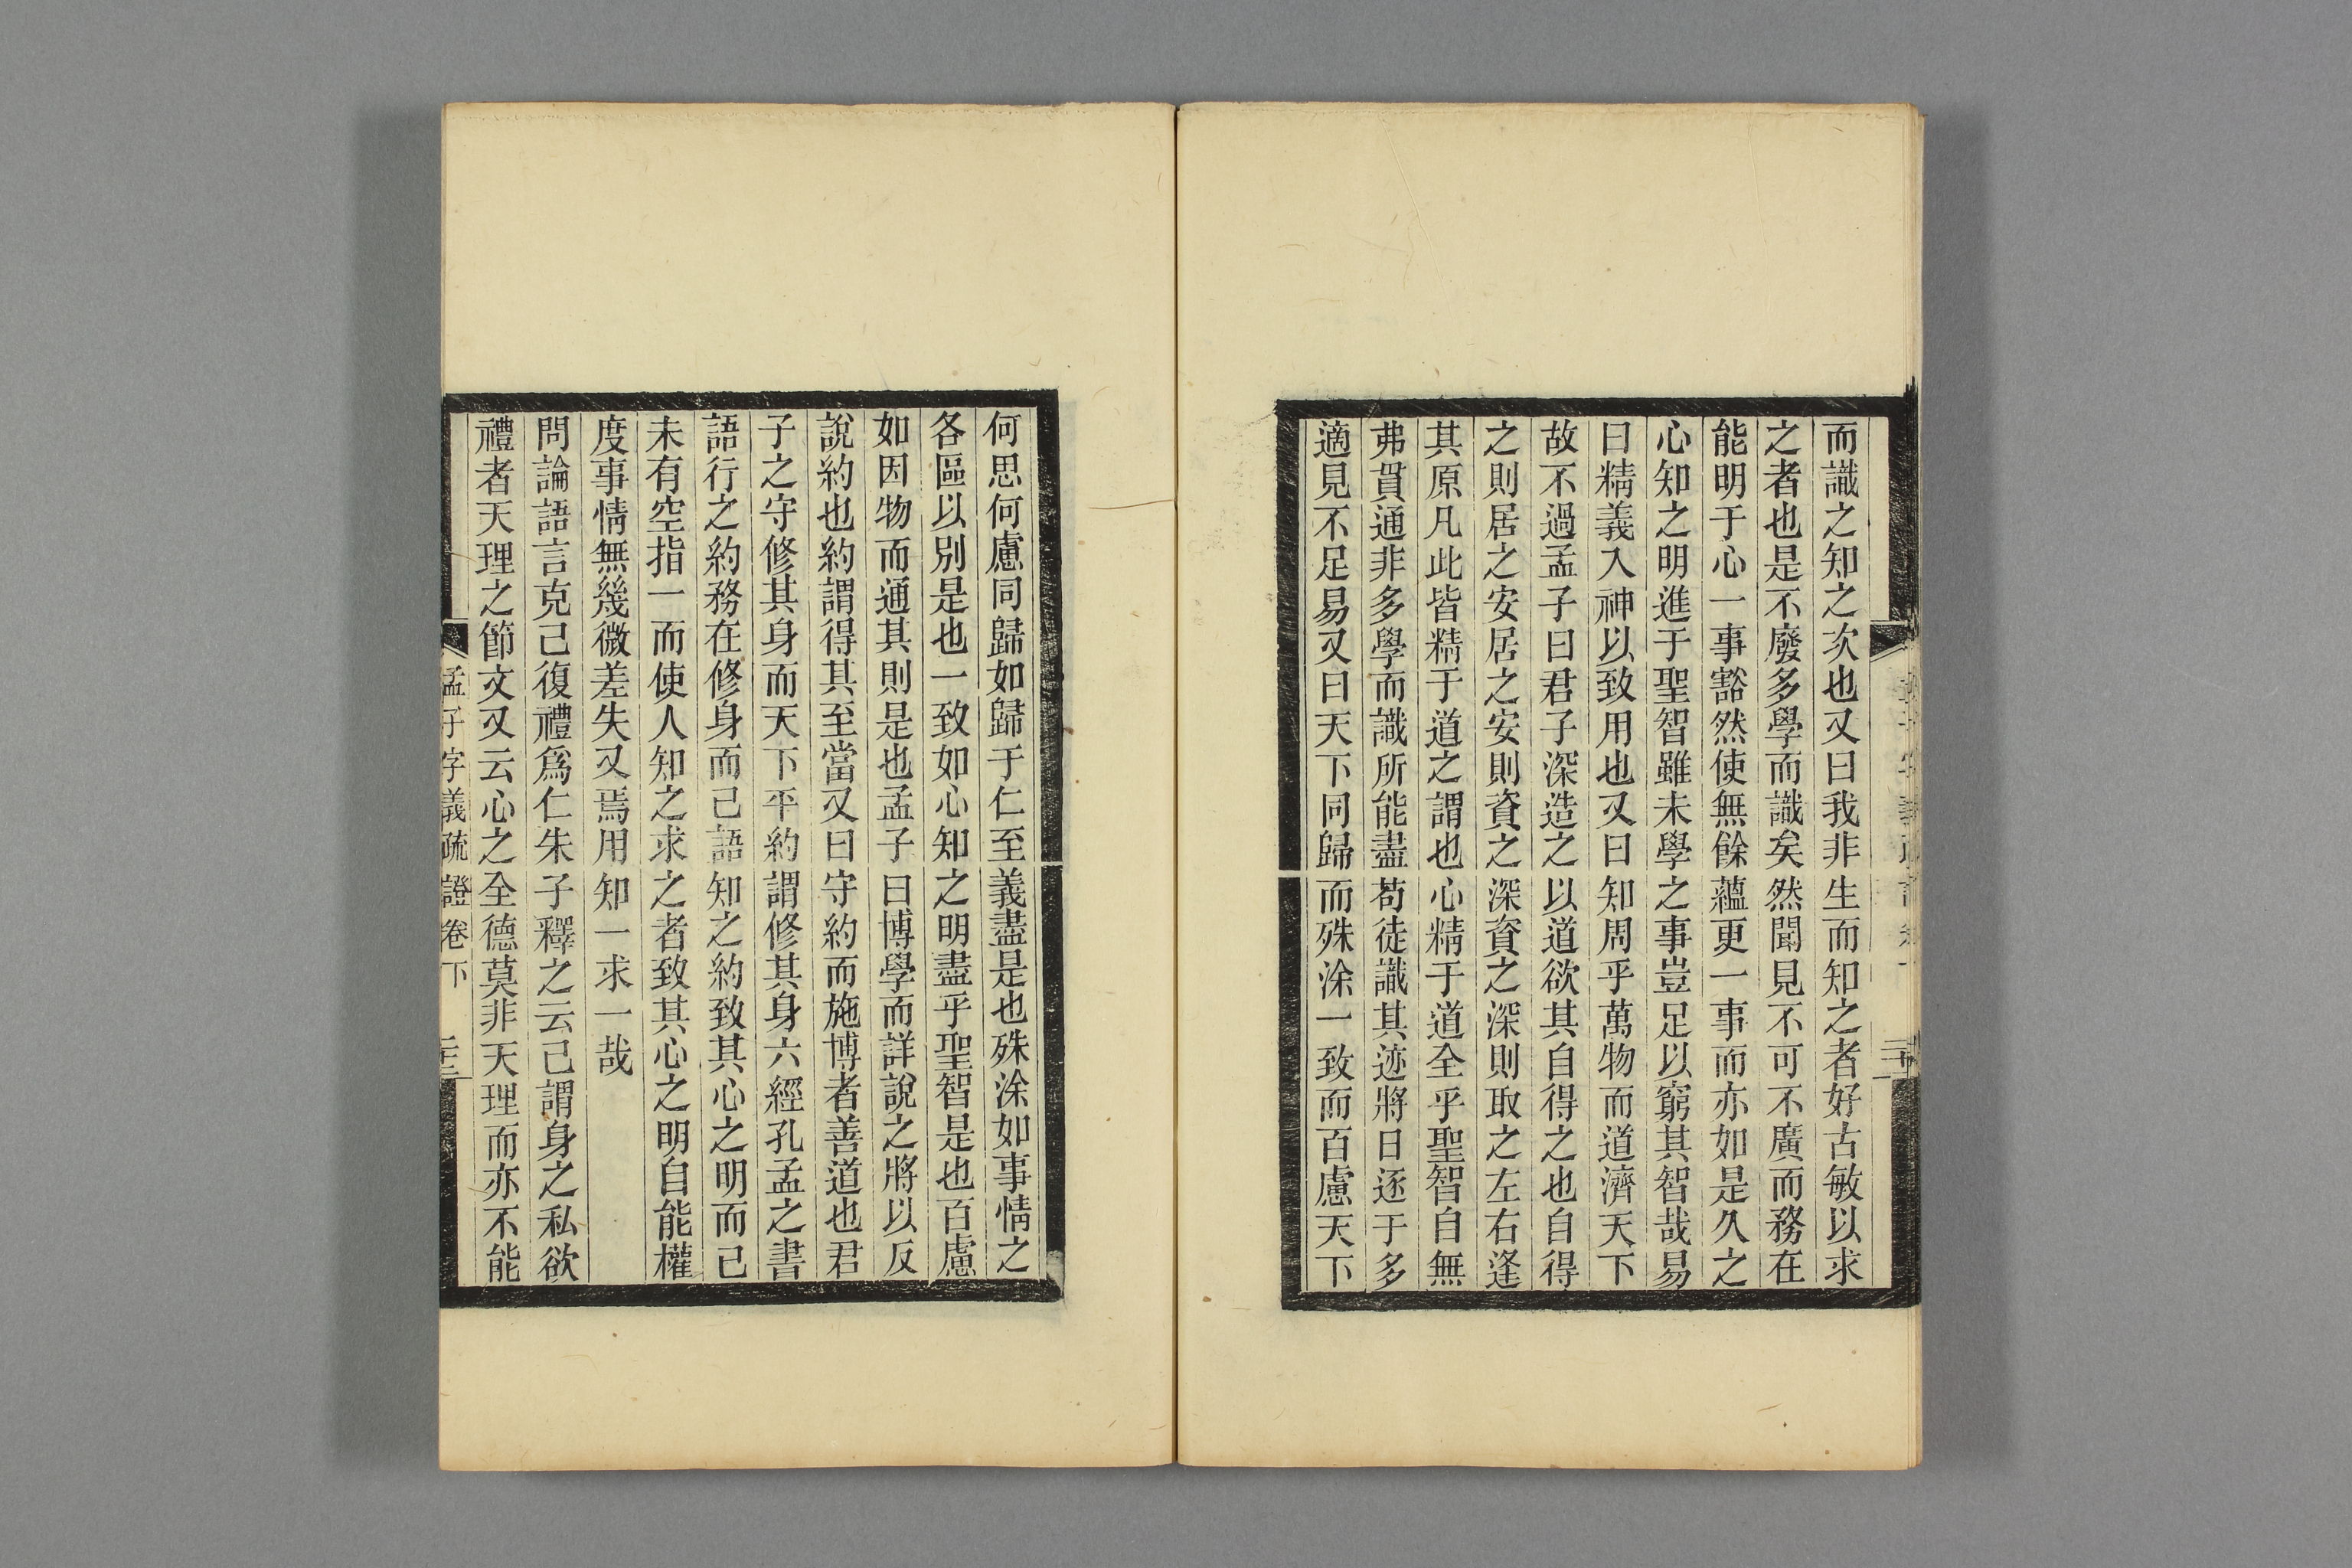 而識之知之次也又曰我非生而知之者好古敏以求
之者也是不廢多學而識矣然聞見不可不廣而務在
能明于心一事豁然使無餘蘊更一事而亦如是久之
心知之明進于聖智雖未學之事豈足以窮其智哉易
曰精義入神以致用也又曰知周乎萬物而道濟天下
故不過孟子曰君子深造之以道欲其自得之也自得
之則居之安居之安則資之深資之深則取之左右逢
其原凡此皆精于道之謂也心精于道全乎聖智自無
弗貫通非多學而識所能盡苟徒識其迹將日逐于多
適見不足易又曰天下同歸而殊涂一致而百慮天下
何思何慮同歸如歸于仁至義盡是也殊涂如事情之
各區以別是也一致如心知之明盡乎聖智是也百慮
如因物而通其則是也孟子曰博學而詳說之將以反
說約也約謂得其至當又曰守約而施博者善道也君
子之守修其身而天下平約謂修其身六經孔孟之書
語行之約務在修身而己語知之約致其心之明而己
未有空指一而使人知之求之者致其心之明自能權
度事情無幾微差失又焉用知一求一哉
問論語言克己復禮爲仁朱子釋之云己謂身之私欲
禮者天理之節文又云心之全德莫非天理而亦不能
孟子字義疏證卷下